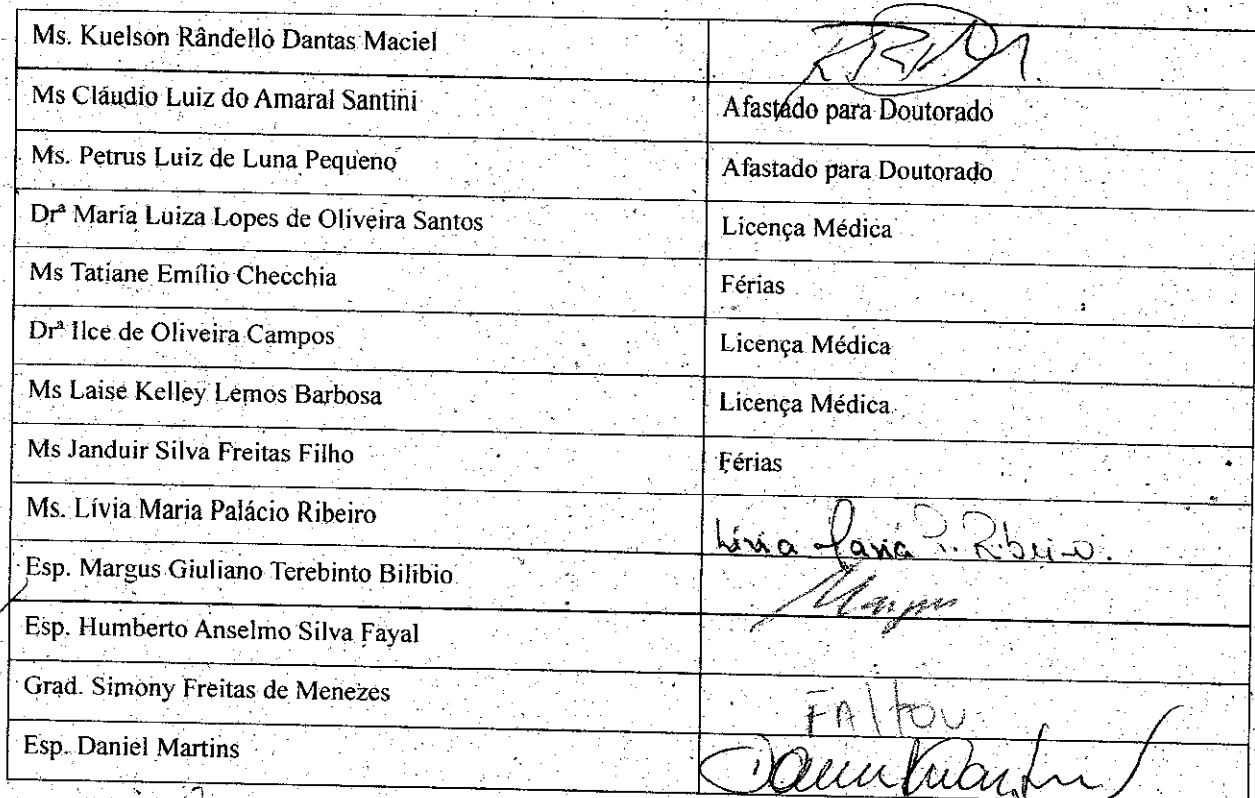 Ms. Kuelson Rândello Dantas Maciel
Ms Cláudio Luiz do Amaral Santini Afastado para Doutorado
Ms. Petrus Luiz de Luna Pequeno Afastado para Doutorado
Drª Maria Luiza Lopes de Oliveira Santos Licença Médica
Ms Tatiane Emílio Checchia Férias
Drª Ilce de Oliveira Campos Licença Médica
Ms Laise Kelley Lemos Barbosa Licença Médica
Ms Janduir Silva Freitas Filho Férias
Ms. Lívia Maria Palácio Ribeiro Lívia Maria P. Ribeiro.
Esp. Margus Giuliano Terebinto Bilibio Margus
Esp. Humberto Anselmo Silva Fayal
Grad. Simony Freitas de Menezes FAltou
Esp. Daniel Martins